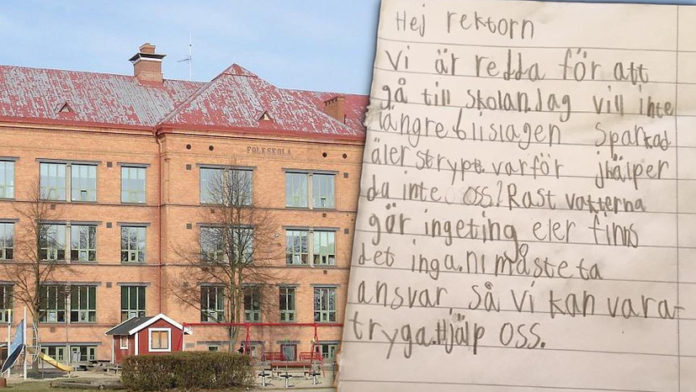 FOLKSKOLA
Hej rektorn
Vi är redda för att
gå till skolan.Jag vill inte
längre bli slagen Sparkad
äler strypt.varför jhälper
du inte oss?Rast vakterna
gör ingeting eler finns
det inga.ni måste ta
ansvar så vi kan vara
tryga.Hjälp oss.